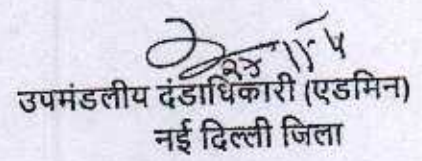 उपमंडलीय दंडाधिकारी (एडमिन)
नई दिल्ली जिला